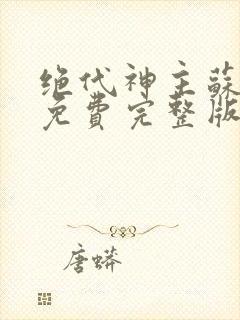 绝代神主蘇
免費完整版
唐蟒